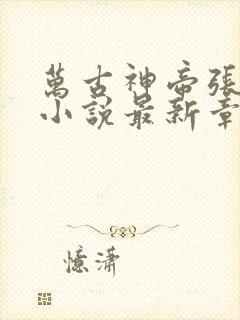 萬古神帝張
小說最新章
憶瀟